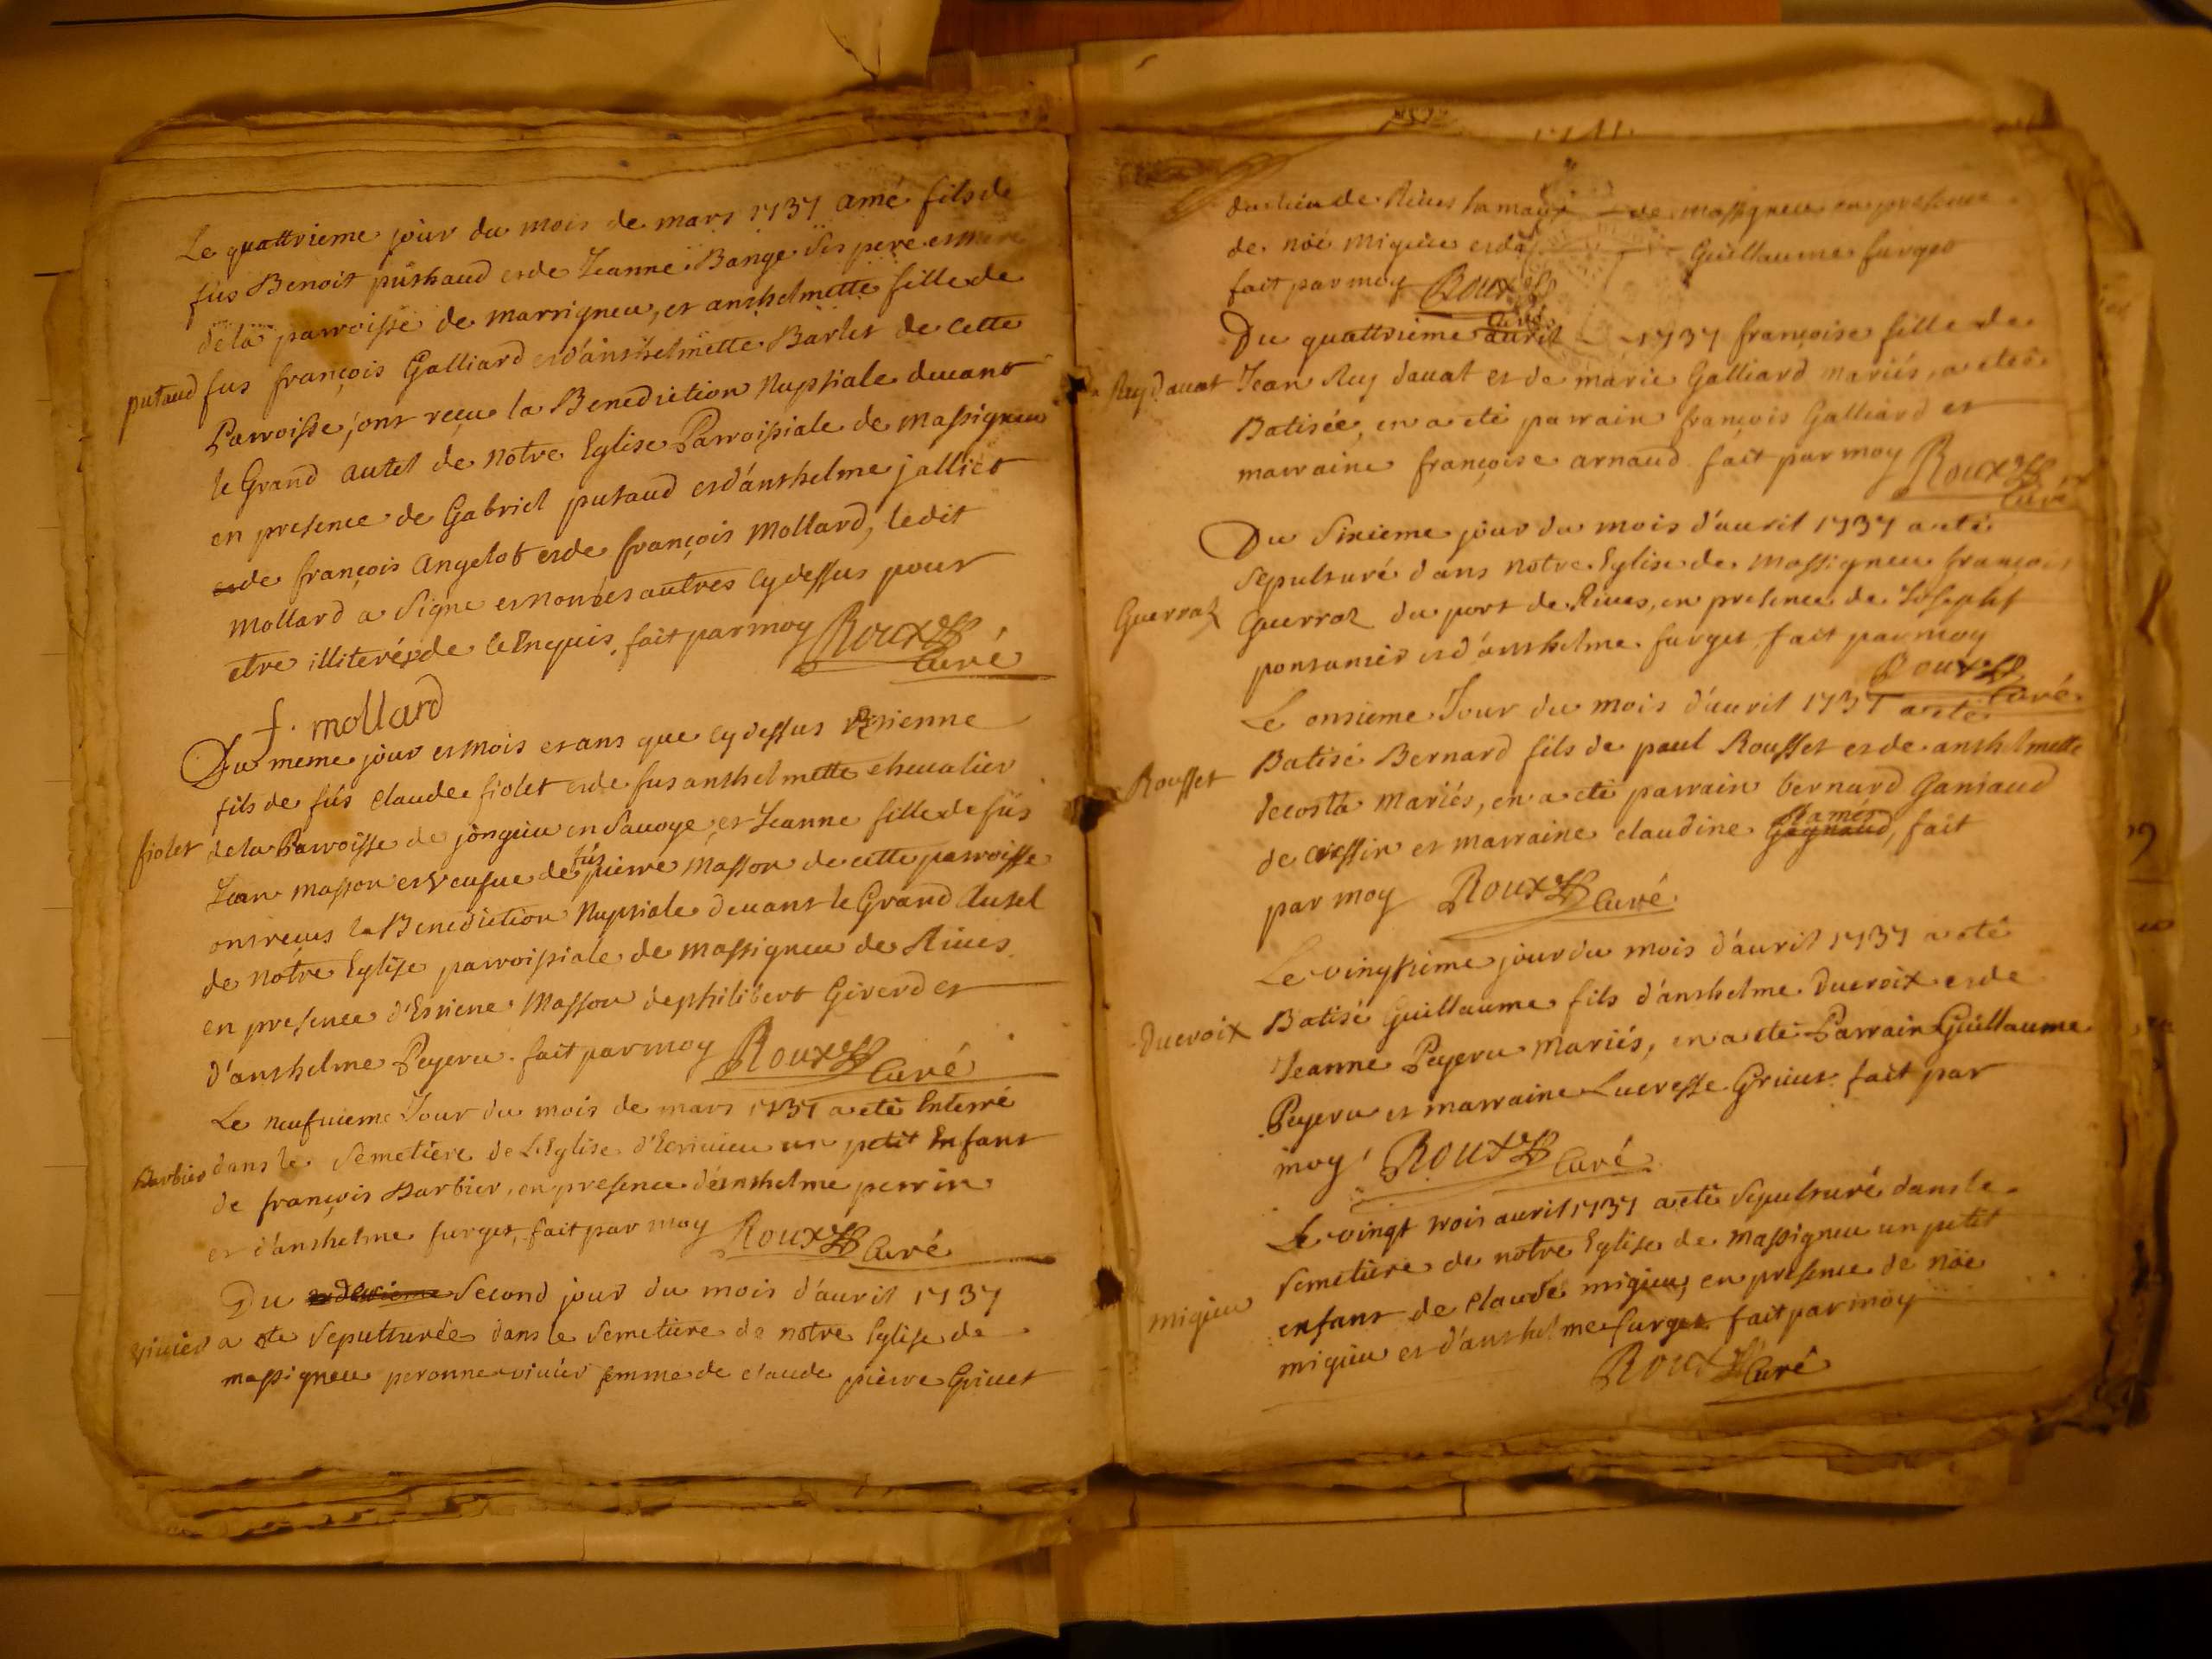 Le quattrieme jour du mois de mars 1737 amé fils de
fus Benoit puthaud et de Jeanne Bange ses pere et mere
de la parroisse de marrigneu, et anthelmette fille de
putaud
fus françois Galliard et d'anthelmette Barlet de cette
Parroisse, ont reçu la Benediction Nuptiale devant
le Grand autel de notre Eglise Parroissiale de massigneu
en presence de Gabriel putaud et d'anthelme jalliet
et de françois angelot et de françois mollard, ledit
mollard a signe et non les autres cy dessus pour
etre illiterés de ce Enquis, fait par moy Roux
Curé
f. mollard
Du meme jour et mois et ans que cy dessus Etienne
fils de fus claude fiolet et de fus anthelmette chevalier
fiolet
de la Parroisse de jongieu en Savoye, et Jeanne fille de fus
Jean masson et veufve de fus pierre masson de cette parroisse
ont reçus la Benediction Nuptiale devant le Grand Autel
de notre Eglise parroissiale de massigneu de Rives
en presence d'Etiene Masson de philibert Giverd et
d'anthelme Peyeru. fait par moy Roux Curé
Le neufvieme Jour du mois de mars 1737 a eté Enterré
Barbier
dans le semetiere de L'Eglise d'Ecrivieu un petit Enfant
de françois Barbier, en presence d'anthelme perrin
et d'anthelme furget, fait par moy Roux Curé
Du second jour du mois d'avril 1737
vivier
a ete sepulturée dans le semetiere de notre Eglise de
massigneu peronne vivier femme de claude pierre Grivet
du lieu de Rives hameau de massigneu en presence
de noé migieu et de Guillaume furget
fait par moy Roux
Curé
Du quattrieme avril 1737 françoise fille de
Rey davat
Jean Rey davat et de marie Galliard mariés, a eteé
Batisée, en a eté parrain françois Galliard et
marraine françoise arnaud fait par moy Roux
Curé
Du sixieme jour du mois d'avril 1737 a eté
sepulturé dans notre Eglise de massigneu françois
Guerraz
Guerraz du port de Rives, en presence de Joseph
ponsanier et d'anthelme furget, fait par moy
Roux Curé
Le onsieme Jour du mois d'avril 1737 a eté
Rousset
Batisé Bernard fils de paul Rousset et de anthelmette
decosta mariés, en a eté parrain bernard Ganiaud
de cressin et marraine claudine Gagnaud, fait
par moy Roux Curé
Le vingtieme jour du mois d'avril 1737 a eté
Ducroix
Batisé Guillaume fils d'anthelme Ducroix et de
Jeanne Peyeru mariés, en a eté Parrain Guillaume
Peyeru et marraine Lucresse Grivet fait par
moy Roux Curé
Le vingt trois avril 1737 a eté sepulturé dans le
semetiere de notre Eglise de massigneu un petit
migieu
enfant de claude migieu, en presence de noé
migieu et d'anthelme furget fait par moy
Roux Curé